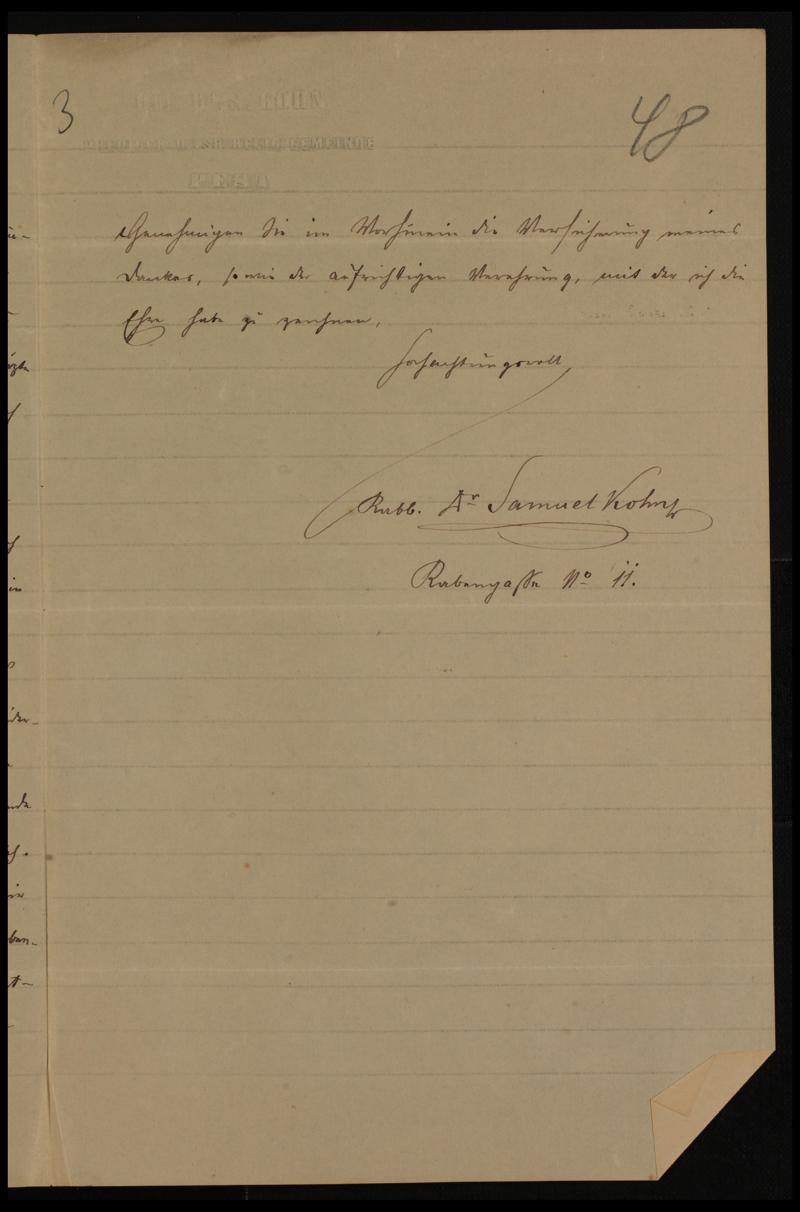 3
48
Genehmigen Sie im Vorhinein die Versicherung meines
Dankes, sowie der aufrichtigen Verehrung, mit der ich die
Ehre habe zu zeichnen,
hochachtungsvoll
Rabb. Dr Samuel Kohn
Rabengasse No 11.